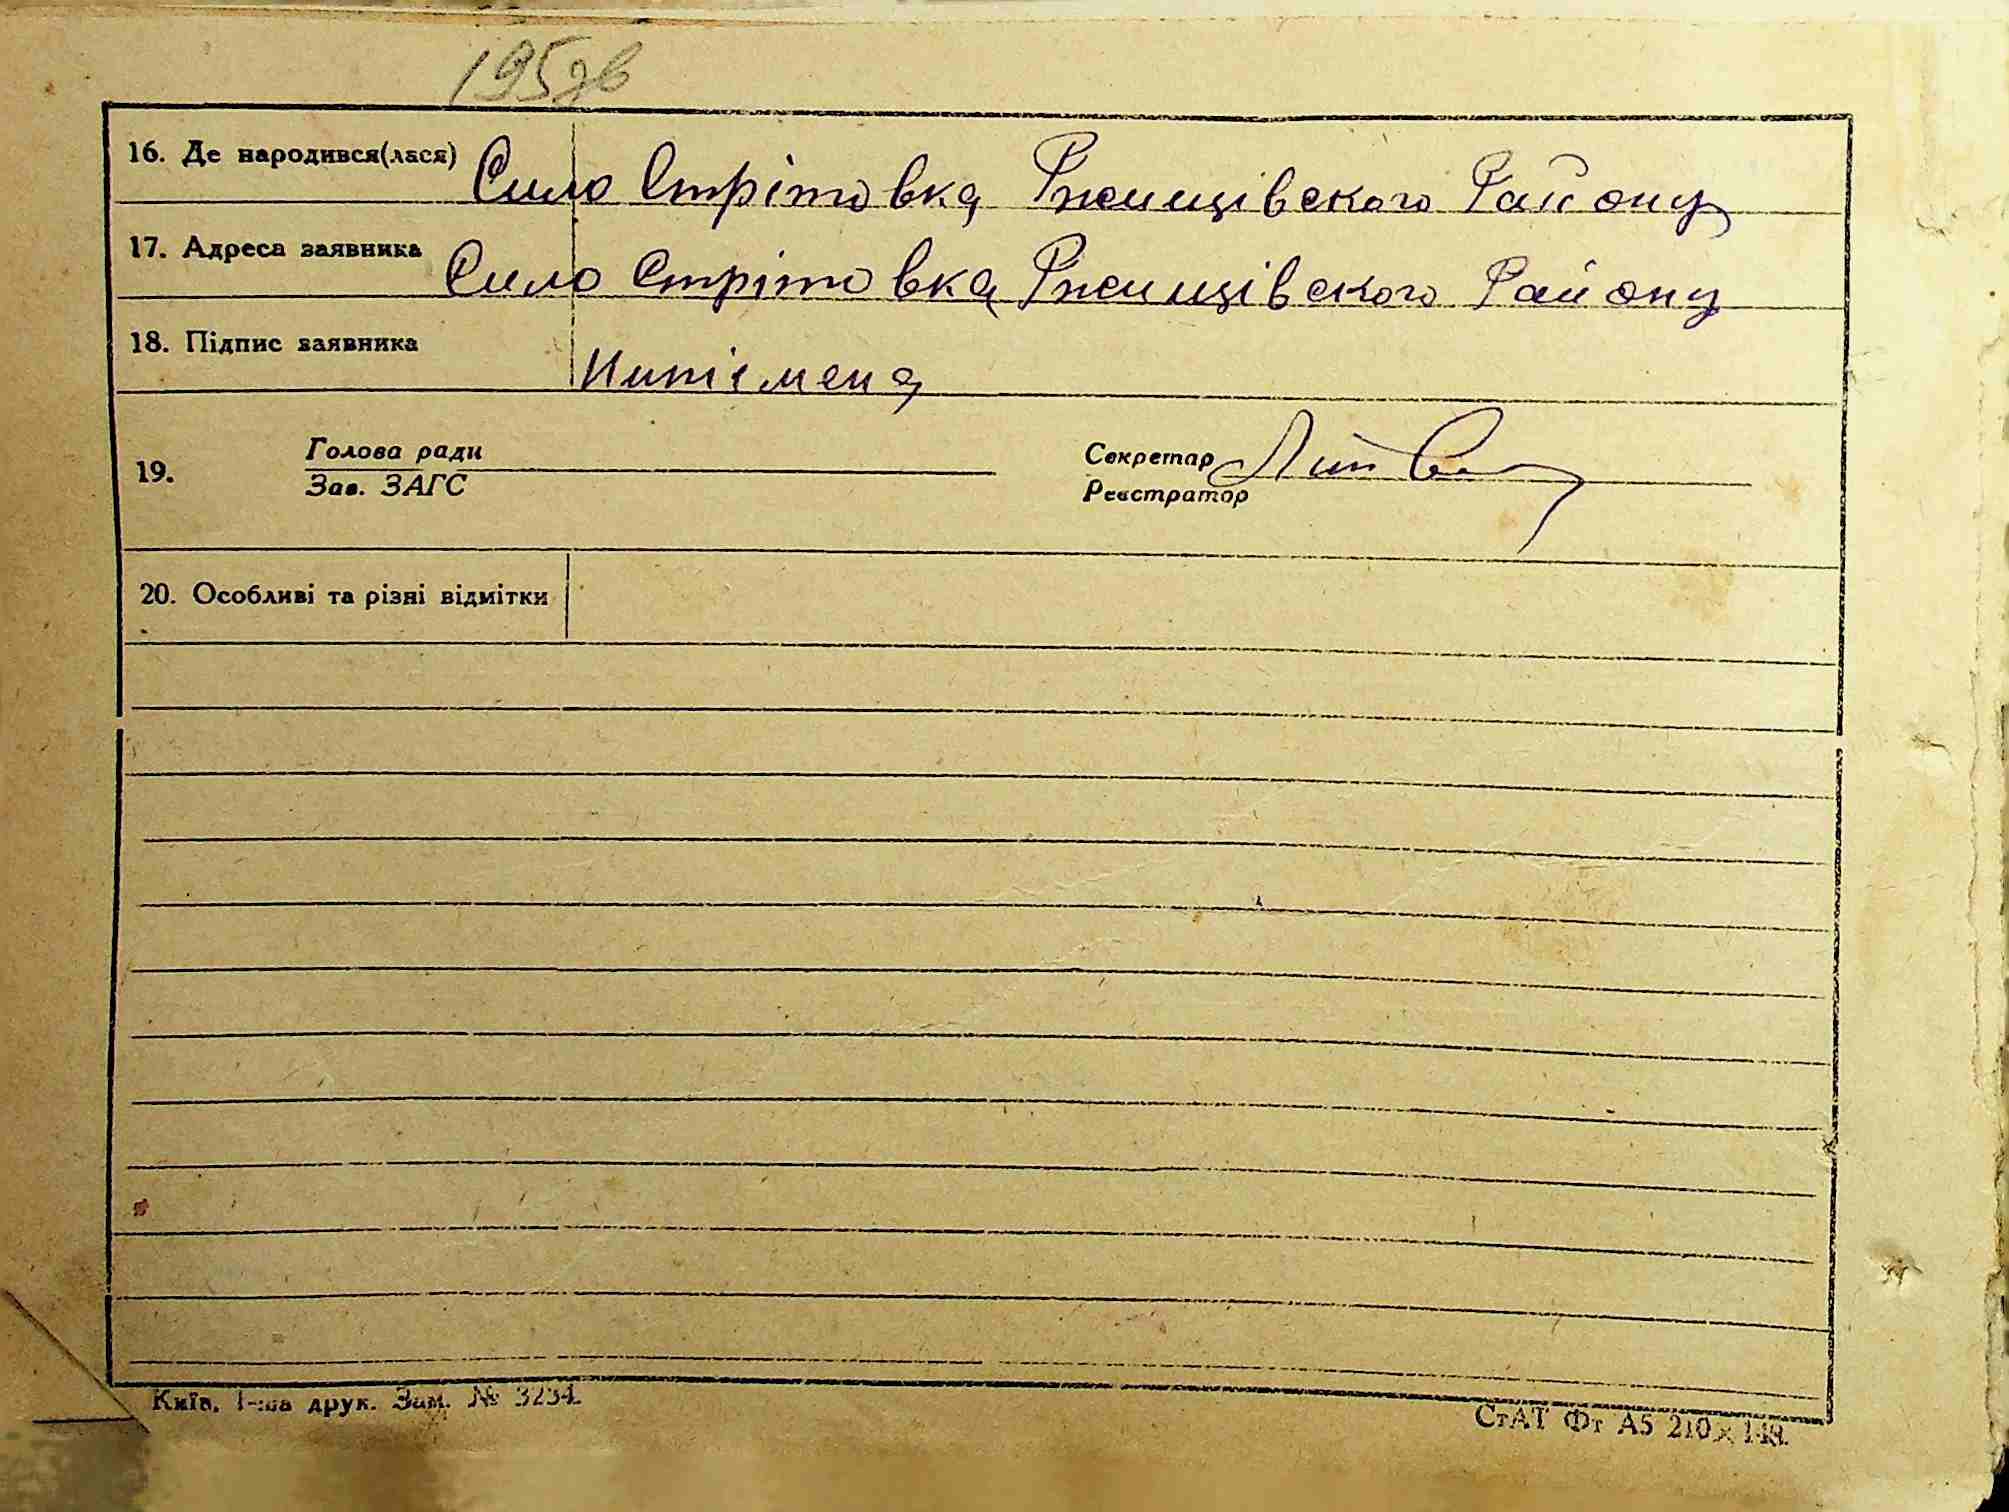 195зв
16. Де народився(лася) Сило Стрітовка Ржищівского Району
17. Адреса заявника Сило Стрітовка Ржищівского Району
18. Підпис заявника Нипісмена
19. Голова ради Секретар
Зав. ЗАГС Реєстратор
20. Особливі та різні відмітки
Київ. 1-ша друк. Зам. № 3254.
СтАТ Фт А5 210×148.